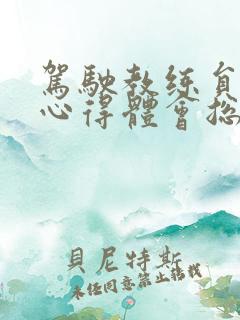 駕駛教练員
心得體會总
貝尼特斯
未经同意禁止转载